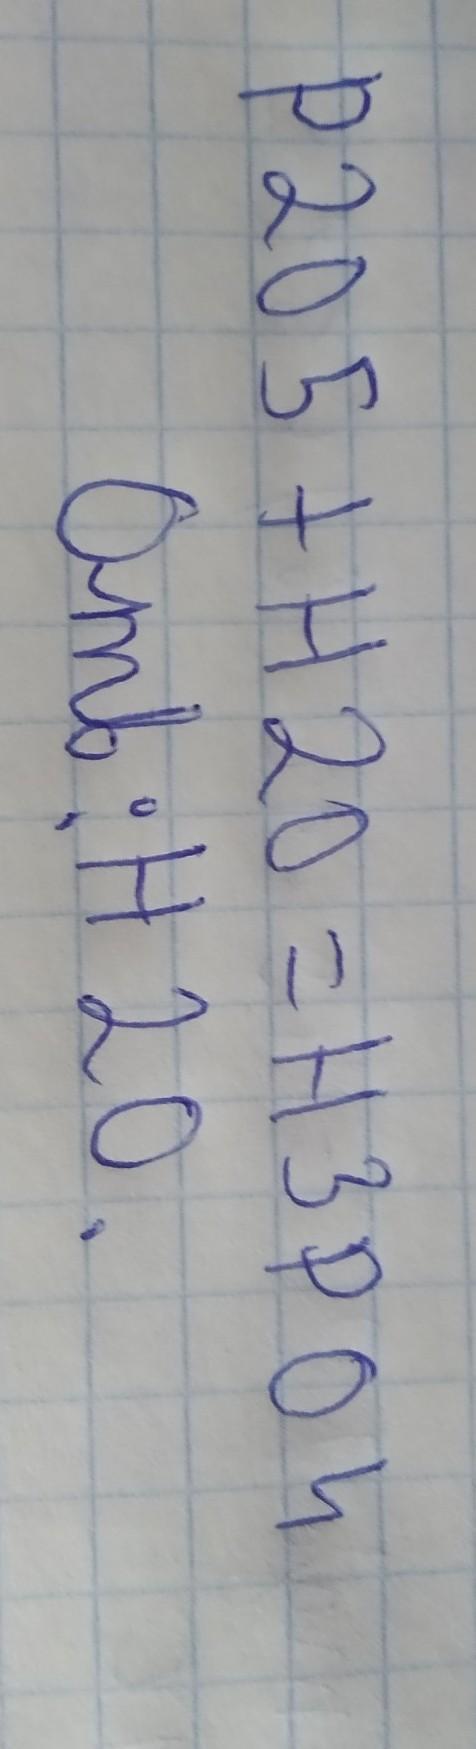 P2O5+H2O=H3PO4
Отв: H2O.